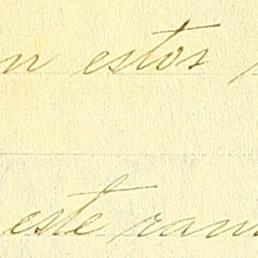 n estos
este ram